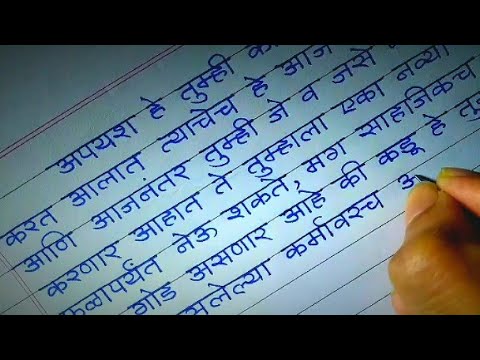 अपयश हे तुम्ही
करत आलात त्याचेच हे आज
आणि आजनंतर तुम्ही जे व जसे
करणार आहात ते तुम्हाला एका नव्या
फळापर्यंत नेऊ शकते, मग साहजिकच
गोड असणार आहे की कडू हे
कर्मावरच